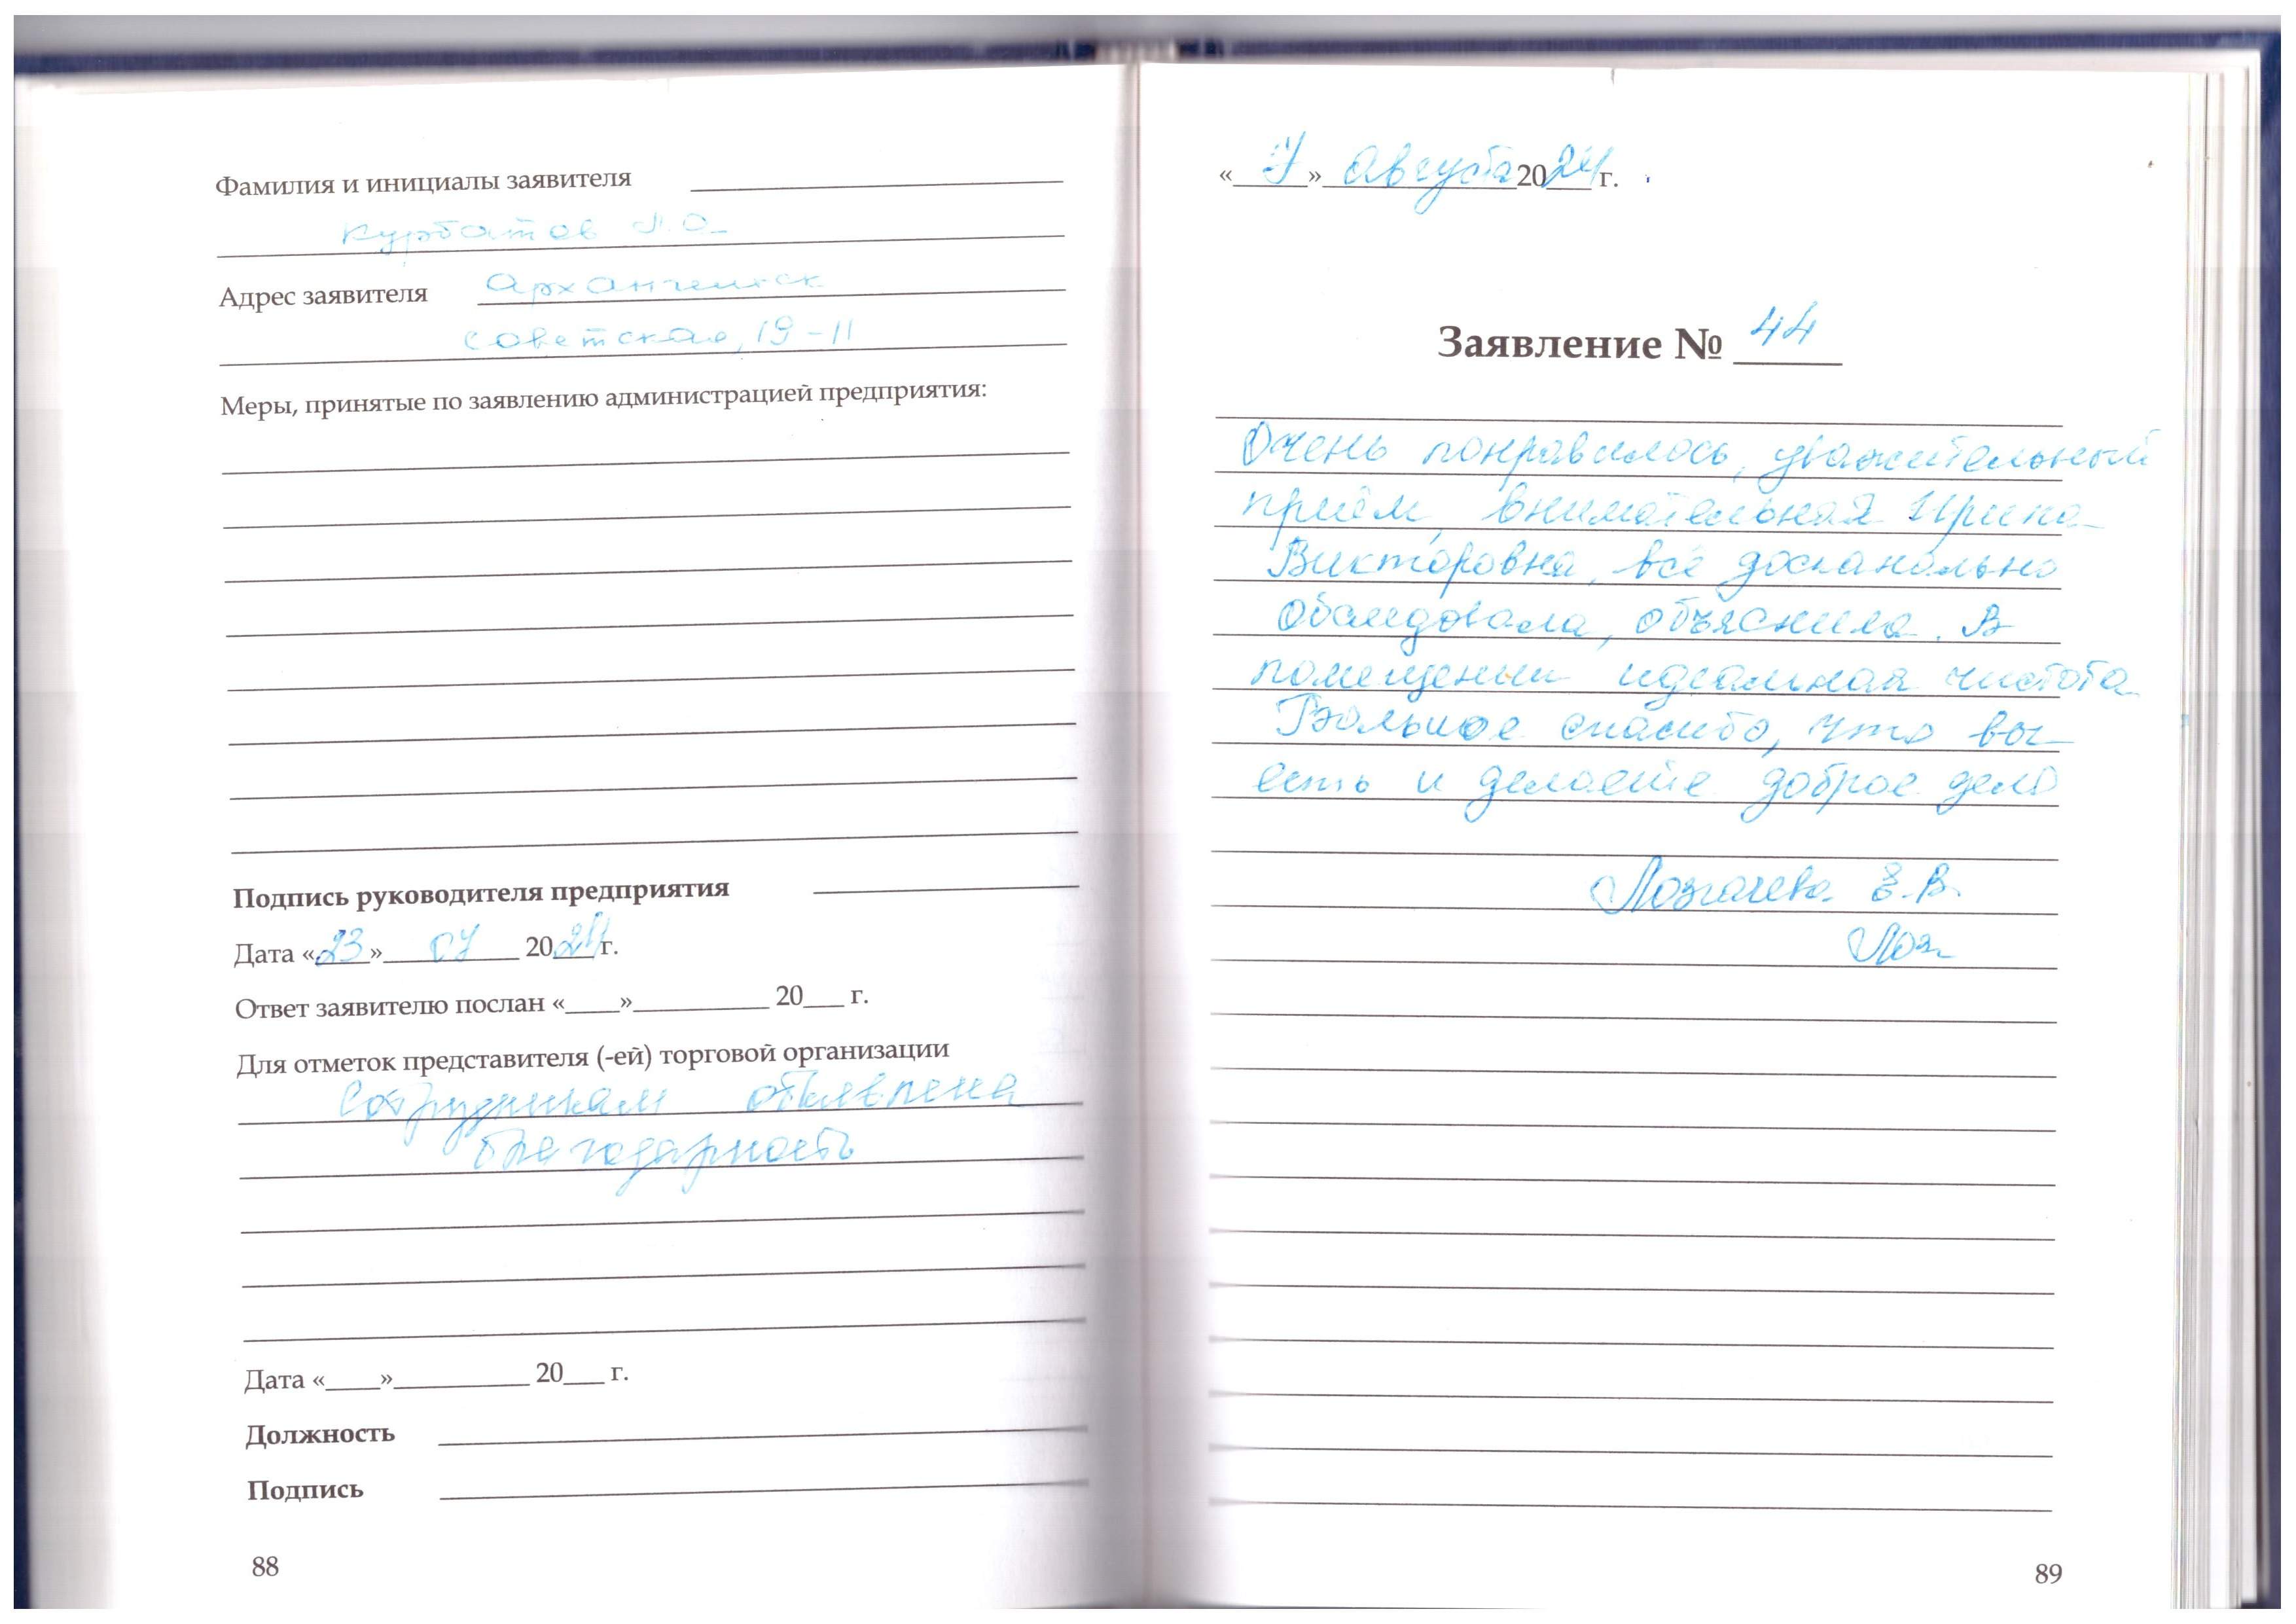 Фамилия и инициалы заявителя
Курбатов Л.О.
Адрес заявителя Архангельск
Советская, 19-11
Меры, принятые по заявлению администрацией предприятия:
Подпись руководителя предприятия
Дата «23» 07 2024 г.
Ответ заявителю послан «____»__________ 20___ г.
Для отметок представителя (-ей) торговой организации
Сотрудникам объявлена
благодарность
Дата «____»__________ 20___ г.
Должность
Подпись
88
«7» августа 2024 г.
Заявление № 44
Очень понравилось, уважительный
приём, внимательная Ирина
Викторовна, всё досканально
обследовала, объяснила. В
помещении идеальная чистота
Большое спасибо, что вы
есть и делаете доброе дело
Лозгачева Е.В.
Лоз
89